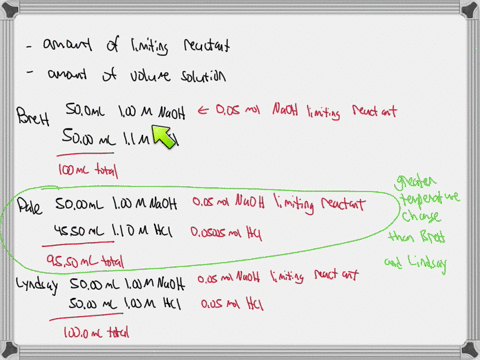 - amount of limiting reactant
- amount of volume solution
Brett 50.0mL 1.00 M NaOH ← 0.05 mol NaOH limiting reactant
50.00 mL 1.1 M
100 mL total
50.00mL 1.00M NaOH 0.05 mol NaOH limiting reactant
45.50 mL 1.10 M HCl 0.05005 mol HCl
95.50 mL total
greater
temperature
change
than Brett
and Lindsay
Lyndsay 50.00 mL 1.00M NaOH 0.05 mol NaOH limiting reactant
50.00 mL 1.00 M HCl 0.05 mol HCl
100.0 mL total